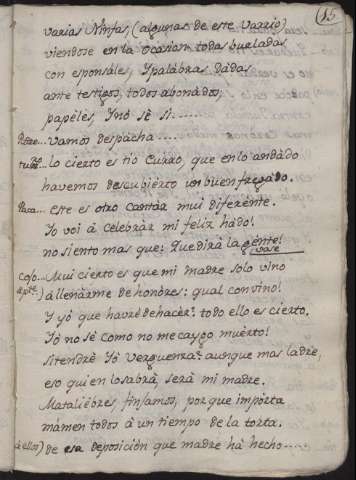 15
varias Ninfas, (algunas de este varrio)
viendose en la ocasion todas burladas
con esponsàles, Ypalàbras dàdas
ante testigos, todos abonàdos,
papèles, Ynò sè si.....
vamos despàcha.....
lo cierto es tio Curro, que en lo andàdo
havemos descubièrto un buen fregàdo.
Paca... este es otro cantàr mui diferente.
Yo voi à celebràr mi feliz hàdo!
no siento mas que: Que dirà la gente!
vase
Coso... Mui cierto es que mi madre solo vino
apte.) à llenàrme de honòres: qual convino!
Y yò que havrè de hacèr? todo ello es cierto.
Yò no sè como no me caygo muèrto!
si tendrè Yò verguenza? aunque mas ladre,
eso quien lo sabrà, serà mi madre.
Matalièbres, finjamos, por que impòrta
màmen todos à un tiempo de la torta.
à ellos) de esa deposiciòn que madre hà hecho.....